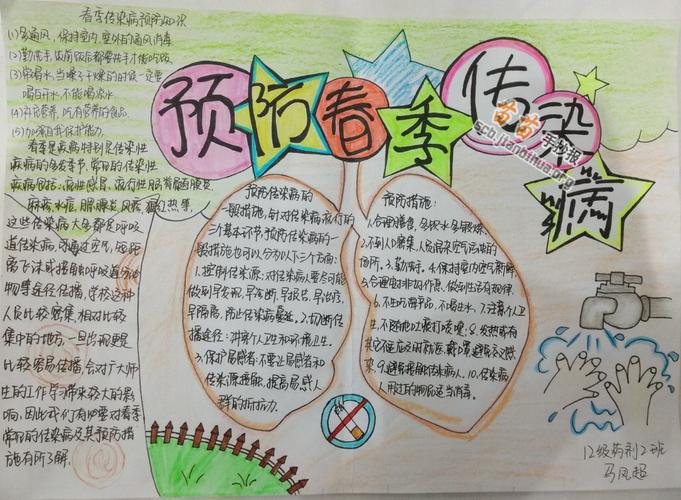 预防春季传染病
苗苗手抄报
scb.jianbihua.org
春季传染病预防知识
(1)多通风,保持室内,室外的通风消毒
(2)勤洗手,饭前饭后都要洗手才能吃饭
(3)常喝水,当嗓子干燥的时候一定要
喝白开水,不能喝凉水
(4)补充营养,吃有营养的食品
(5)加深自我保护能力
春季是疾病特别是传染性
疾病的多发季节,常见的传染性
疾病包括:流性感冒、流行性脑脊髓膜炎
麻疹,水痘,腮腺炎,风疹,猩红热等
这些传染病大多都是呼吸
道传染病,可通过空气,短距
离飞沫或接触呼吸道分泌
物等途径传播,学校这种
人员比较密集,相对比较
集中的地方,一旦出现更是
比较容易传播,会对广大师
生的工作学习带来较大的影
响,因此我们有必要对春季
常见的传染病及其预防措
施有所了解.
预防传染病的
一般措施,针对传染病流行的
三个基本环节,预防传染病的一
般措施也可以分为以下三个方面:
1.控制传染源:对传染病人要尽可能
做到早发现,早诊断,早报告,早治疗,
早隔离,防止传染病蔓延,2.切断传
播途径:讲究个人卫生和环境卫生.
3.保护易感者:不要让易感者和
传染源接触,提高易感人
群的抵抗力
预防措施:
1.合理膳食,多饮水多锻炼.
2.不到人口密集,人员混杂空气污染的
场所.3.勤洗手.4.保持室内空气新鲜
5.合理安排好作息,做到生活有规律.
6.不生吃海产品,不喝生水.7.注意个人卫
生,不随地吐痰打喷嚏;8.发热或有
其它不适应及时就医,戴口罩避免交叉感
染.9.避免接触传染病人.10.传染病人
用过的物品适当消毒.
12级药剂2班
马凤超